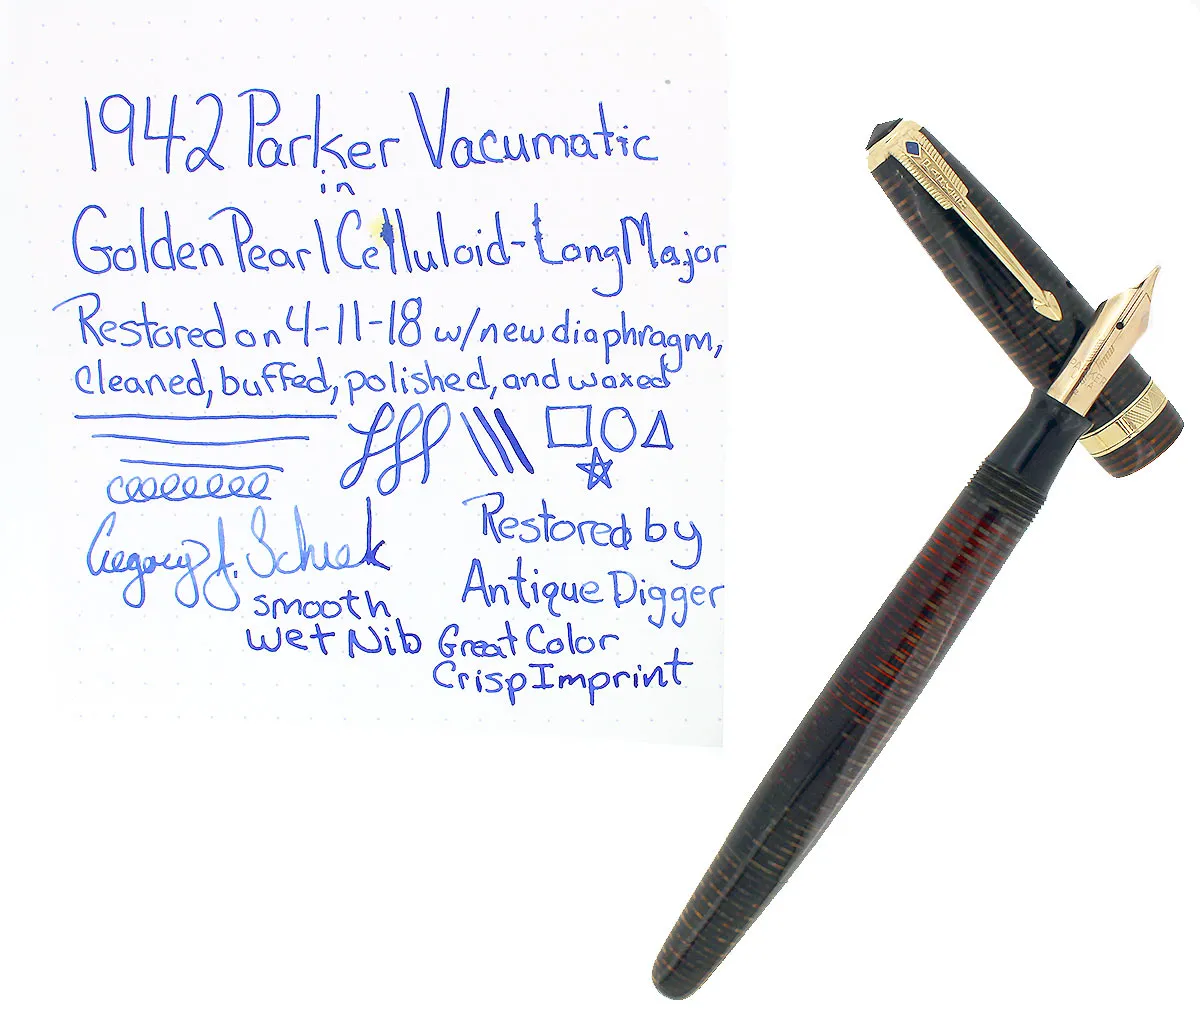 1942 Parker Vacumatic
in
Golden Pearl Celluloid - Long Major
Restored on 4-11-18 w/new diaphragm,
cleaned, buffed, polished, and waxed
Gregory J.
smooth
wet Nib
Restored by
Antique Digger
Great Color
Crisp Imprint
PARKER